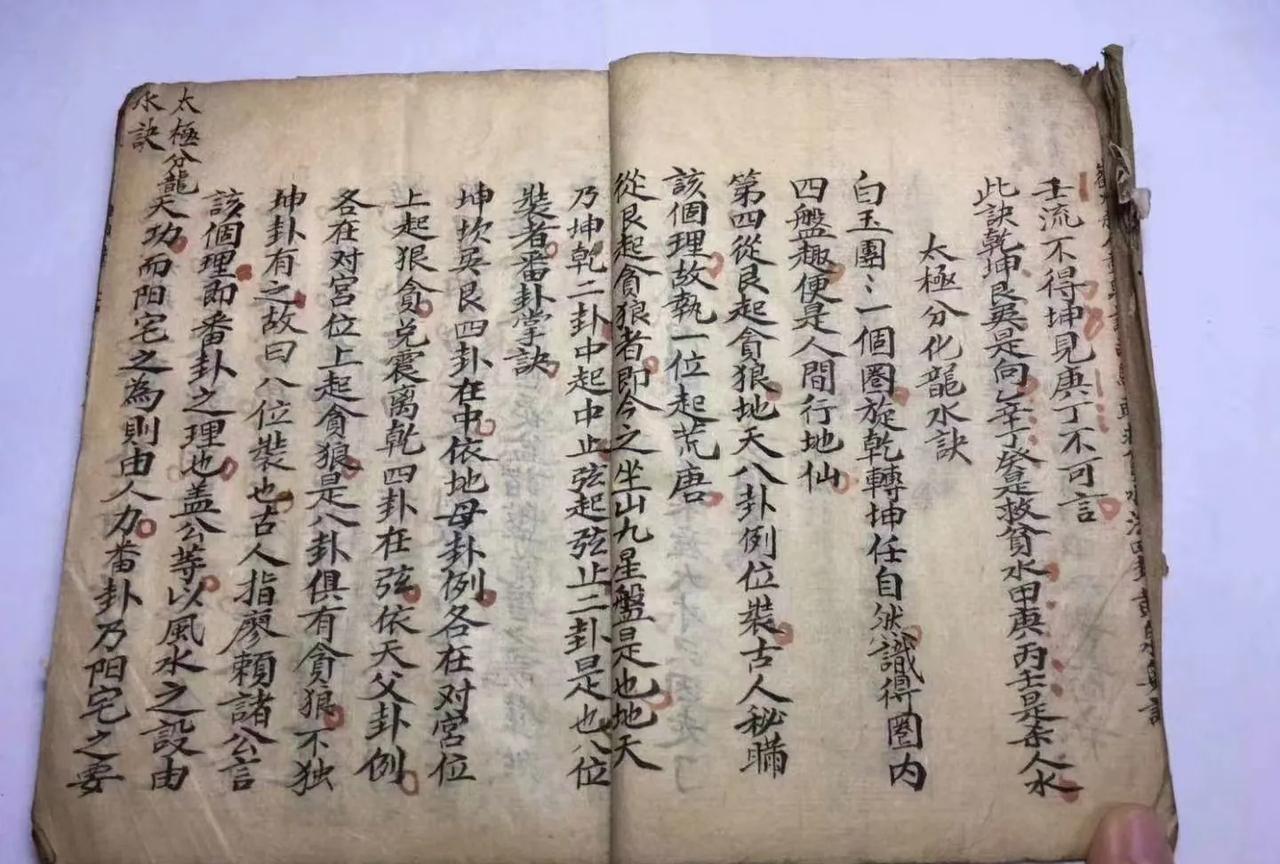 壬流不得坤見庚丁不可言
此訣乾坤艮巽是向乙辛丁癸是救貧水甲庚丙壬是杀人水
太極分化龍水訣
白玉團〻一個圈旋乾轉坤任自然識得圈内
四盤趣便是人間行地仙
第四從艮起貪狼地天八卦例位裝古人秘
該個理故執一位起荒唐
從艮起貪狼者即今之坐山九星盤是也地天
乃坤乾二卦中起中止弦起弦止二卦是也八位
裝者番卦掌訣
坤坎巽艮四卦在中依地母卦例各在对宮位
上起狠貪兌震离乾四卦在弦依天父卦例
各在对宮位上起貪狼是八卦俱有貪狼不独
坤卦有之故曰八位裝也古人指廖賴諸公言
該個理即番卦之理也盖公等以風水之設由
天功而阳宅之為則由人力番卦乃阳宅之要
太極分龍
水訣